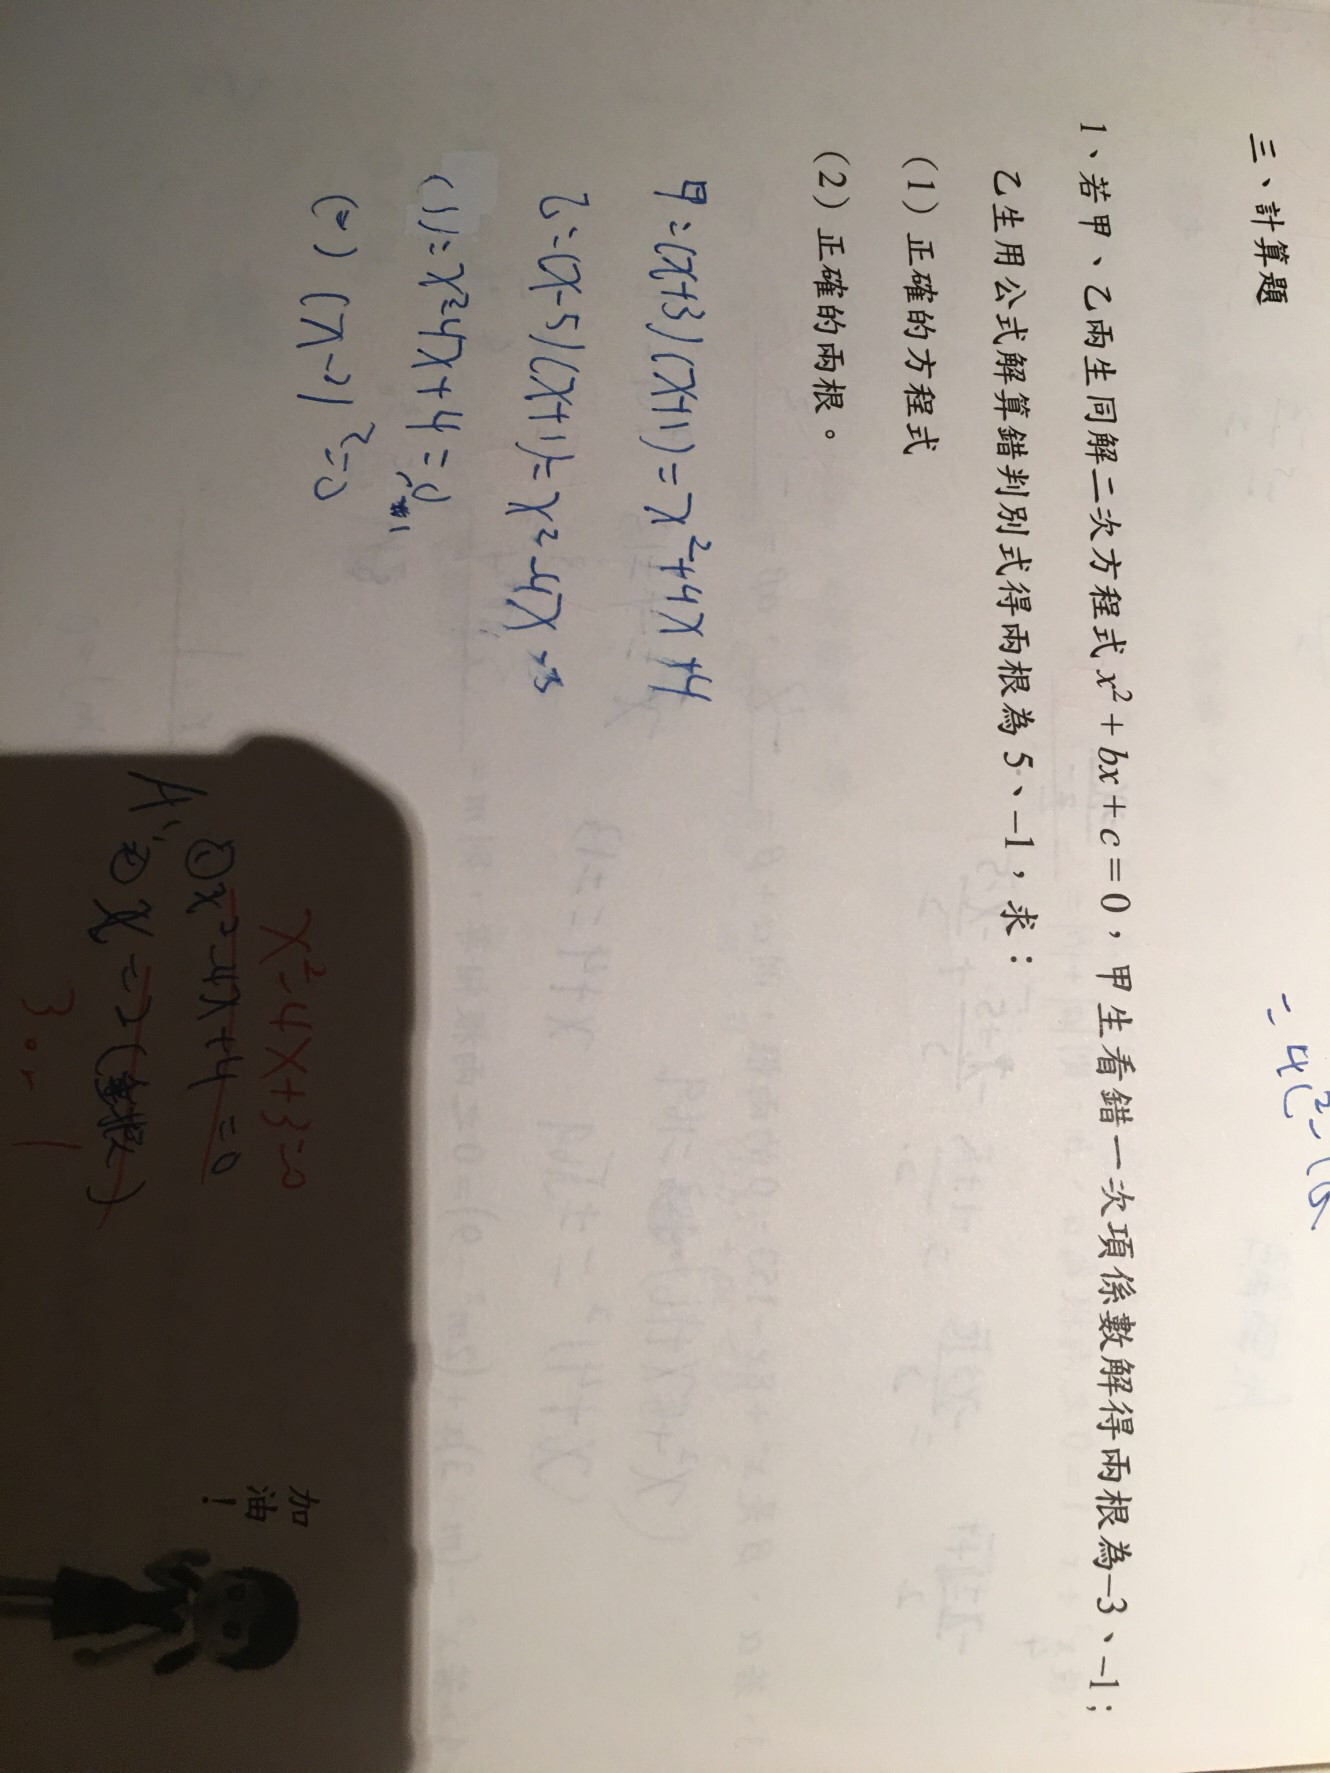 三、計算題
= 4(2-(
1、若甲、乙兩生同解二次方程式 x² + bx + c = 0，甲生看錯一次項係數解得兩根為-3、-1；
乙生用公式解算錯判別式得兩根為 5、-1，求：
(1) 正確的方程式
(2) 正確的兩根。
甲=(x+3)(x+1)=x²+4x+4
乙=(x-5)(x+1)=x²-4x+5
(1)=x²-4x+4=0
(2) (x-2)²=0
x²-4x+3=0
A:① x²-4x+4=0
② x=2(重根)
3 or 1
加油！